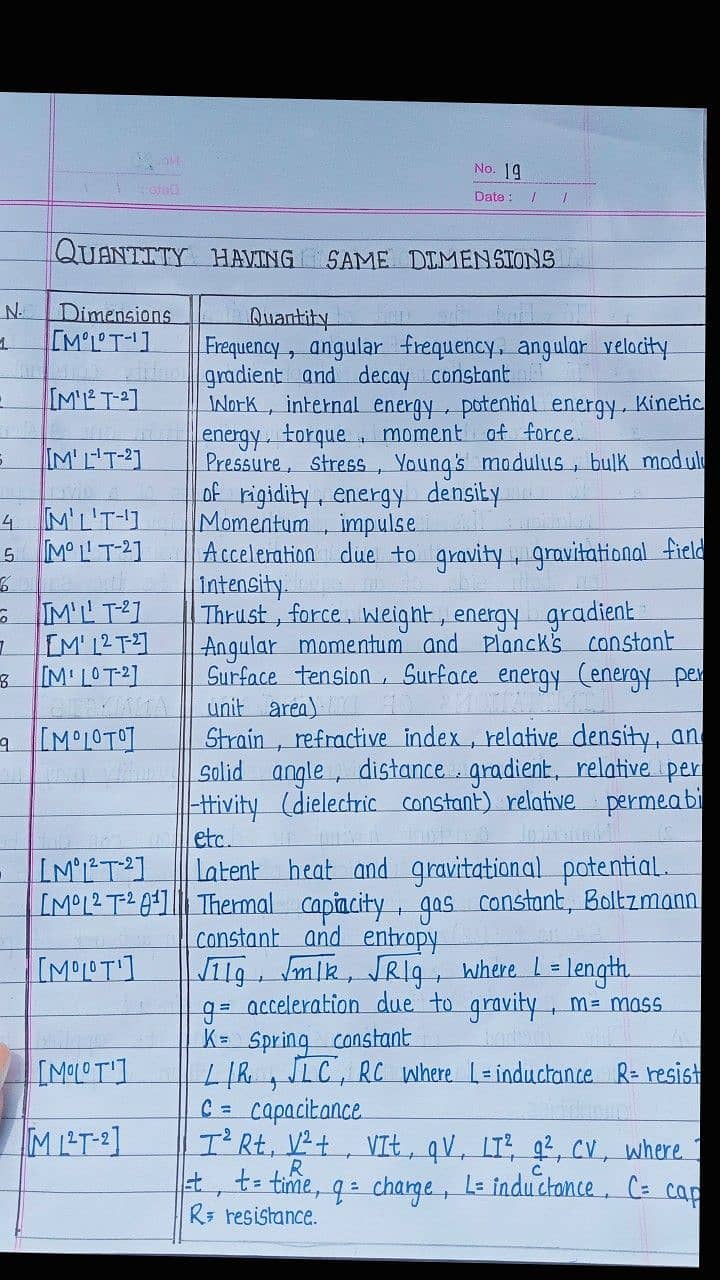 No. 19
Date : / /
QUANTITY HAVING SAME DIMENSIONS
N. Dimensions Quantity
1 [M⁰L⁰T⁻¹] Frequency, angular frequency, angular velocity
gradient and decay constant
[M¹L²T⁻²] Work, internal energy, potential energy, Kinetic
energy, torque, moment of force.
[M¹L⁻¹T⁻²] Pressure, stress, Young's modulus, bulk modulu
of rigidity, energy density
4 [M¹L¹T⁻¹] Momentum, impulse
5 [M⁰L¹T⁻²] Acceleration due to gravity, gravitational field
6 intensity.
6 [M¹L¹T⁻²] Thrust, force, weight, energy gradient
7 [M¹L²T⁻²] Angular momentum and Planck's constant
8 [M¹L0T⁻²] Surface tension, Surface energy (energy per
unit area)
9 [M⁰L0T0] Strain, refractive index, relative density, an
solid angle, distance. gradient, relative per
-ttivity (dielectric constant) relative permeabi
etc.
[M⁰L²T⁻²] Latent heat and gravitational potential.
[M⁰L²T⁻²θ⁻¹] Thermal capacity, gas constant, Boltzmann
constant and entropy
[M⁰L⁰T¹] √1/g, √m/k, √R/g, where L = length
g = acceleration due to gravity, m = mass
K = Spring constant
[M⁰L⁰T¹] L/R, √LC, RC where L = inductance R = resist
C = capacitance
[ML²T⁻²] I²Rt, V²t/R, VIt, qV, LI², q²/C, CV, where I
t, t = time, q = charge, L = inductance, C = cap
R = resistance.